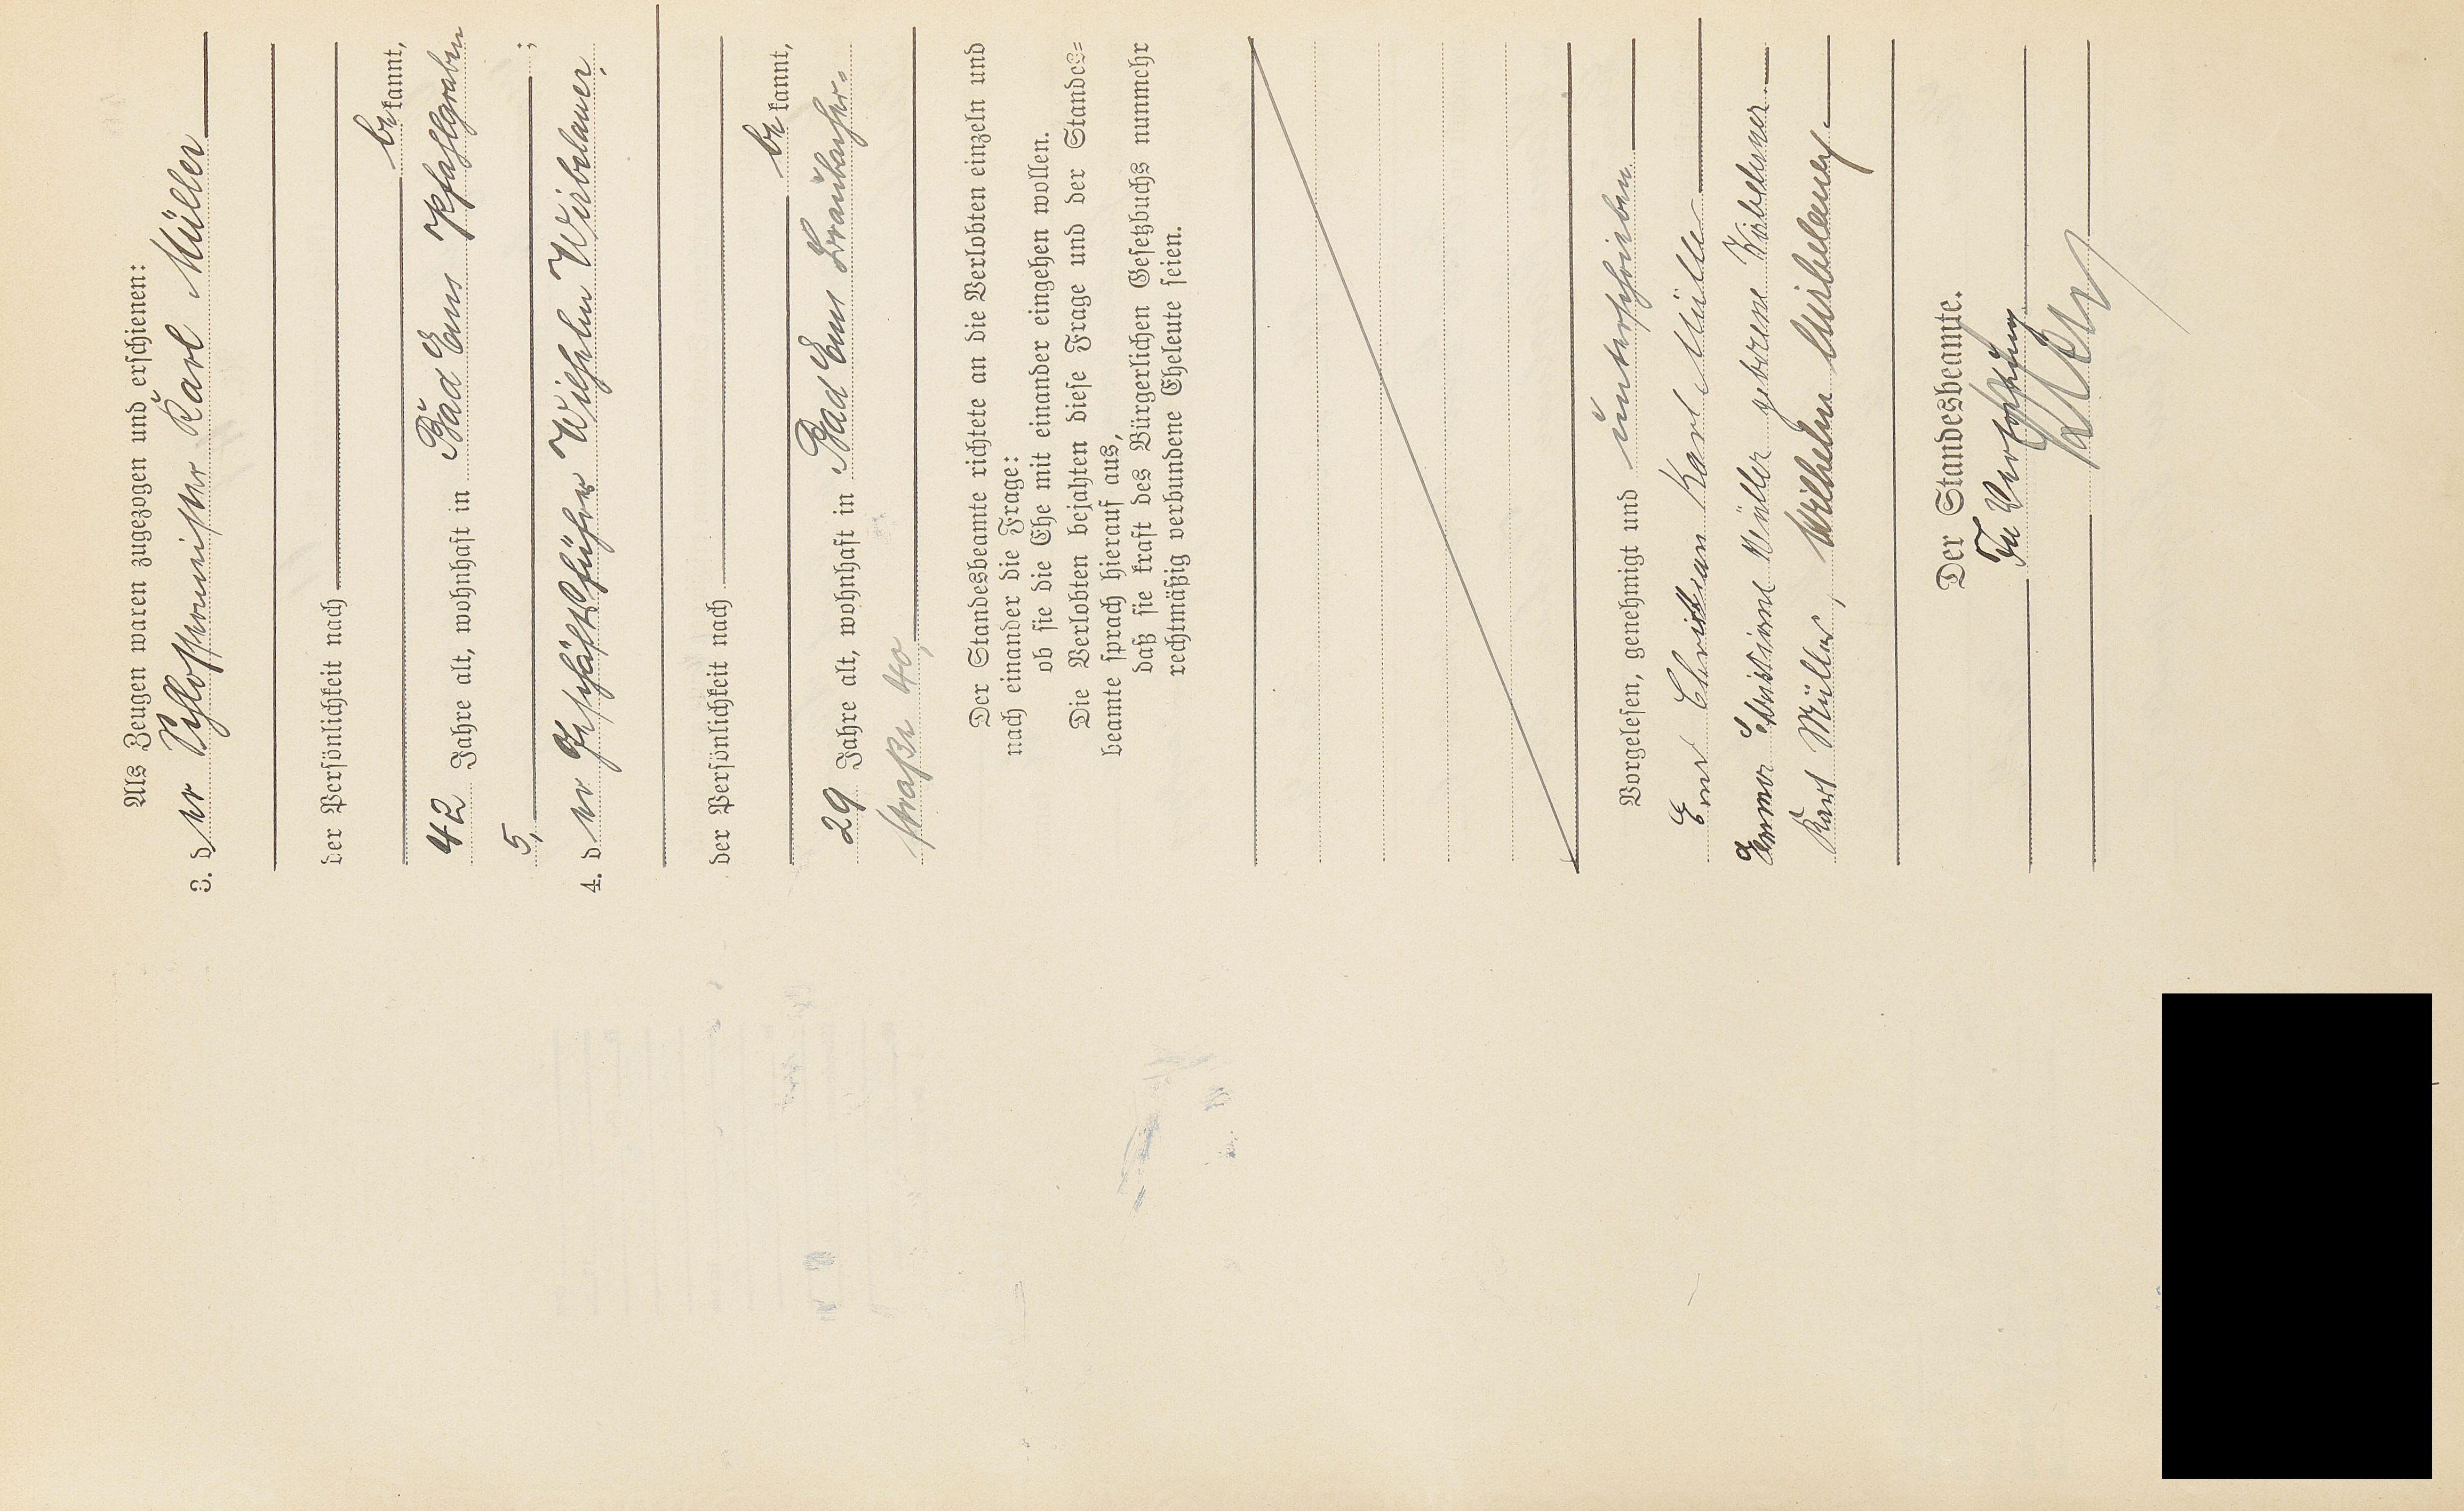 Als Zeugen waren zugezogen und erschienen:
3. der Schlossermeister Karl Müller
der Persönlichkeit nach
bekannt,
42 Jahre alt, wohnhaft in Bad Ems Pfahlgraben
5, ;
4. der Geschäftsführer Wilhelm Wirbelauer,
der Persönlichkeit nach
bekannt,
29 Jahre alt, wohnhaft in Bad Ems Braubacher-
straße 40,
Der Standesbeamte richtete an die Verlobten einzeln und
nach einander die Frage:
ob sie die Ehe mit einander eingehen wollen.
Die Verlobten bejahten diese Frage und der Standes=
beamte sprach hierauf aus,
daß sie kraft des Bürgerlichen Gesetzbuchs nunmehr
rechtmäßig verbundene Eheleute seien.
Vorgelesen, genehmigt und unterschrieben
Emil Christian Karl Müller
Emma Christiane Müller geborene
Karl Müller, Wilhelm Wirbelauer.
Der Standesbeamte.
In Vertretung